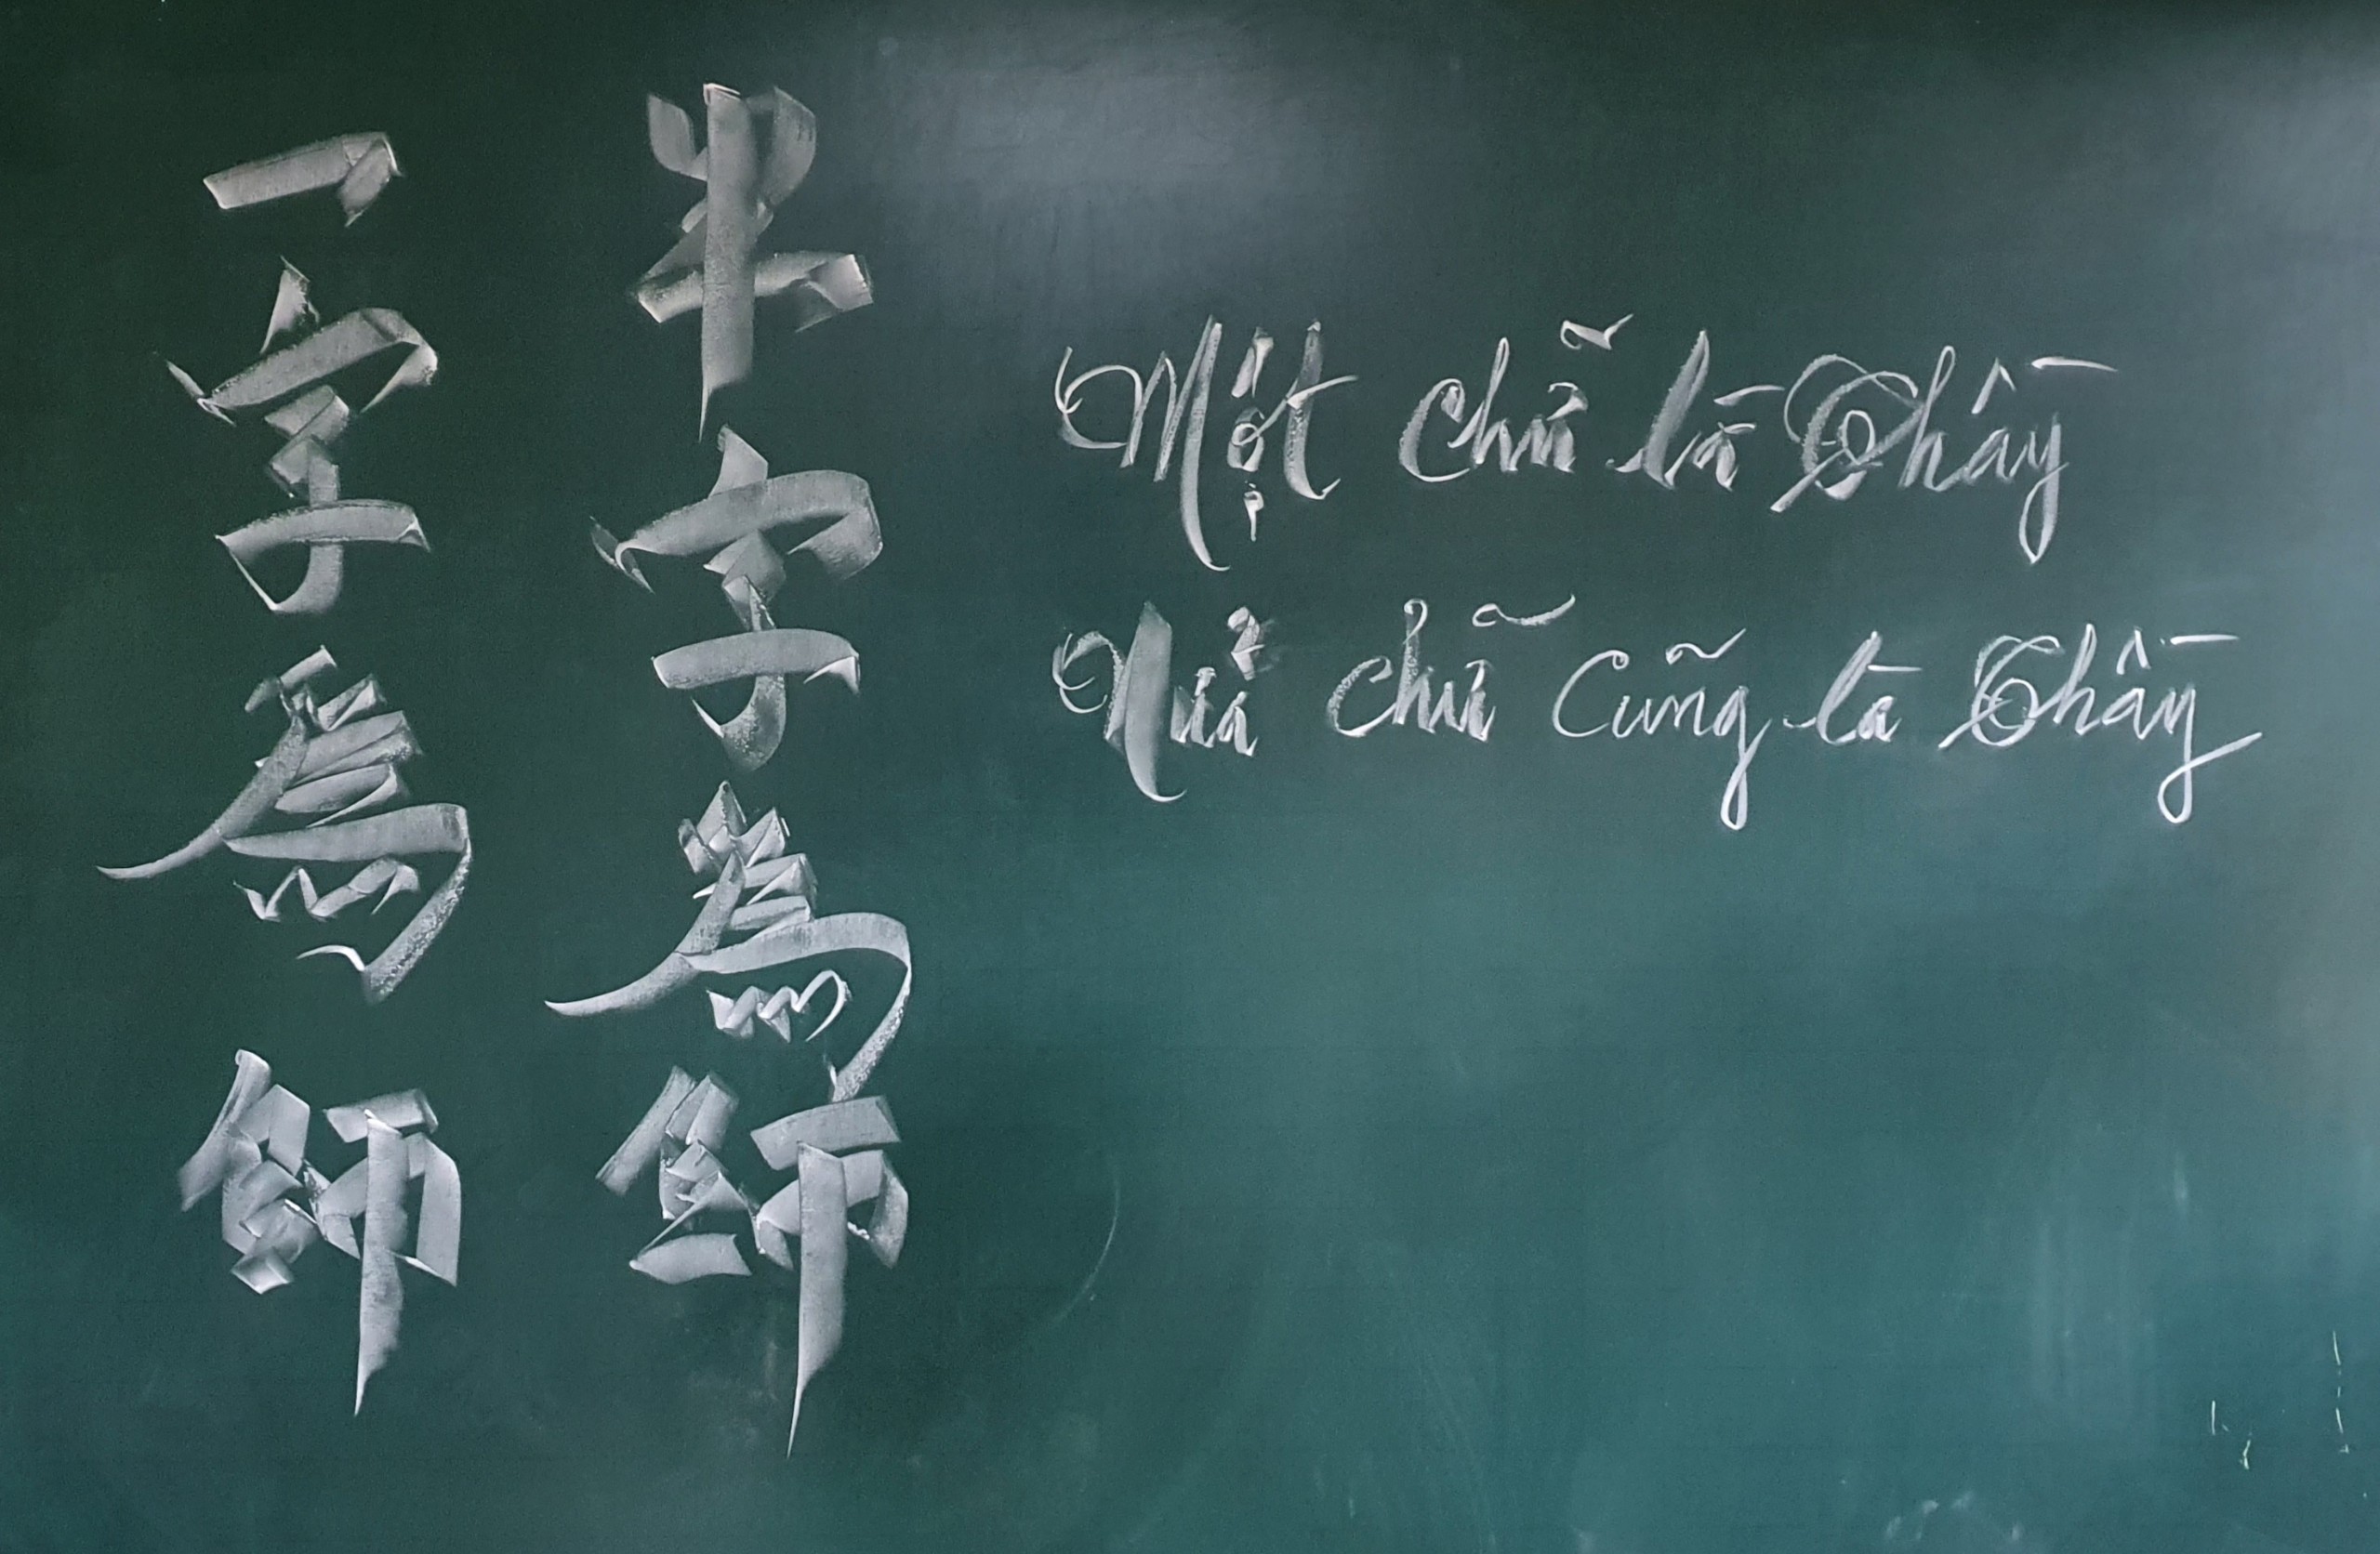 一字爲師
半字爲師
Một chữ là Thầy
Nửa chữ cũng là Thầy